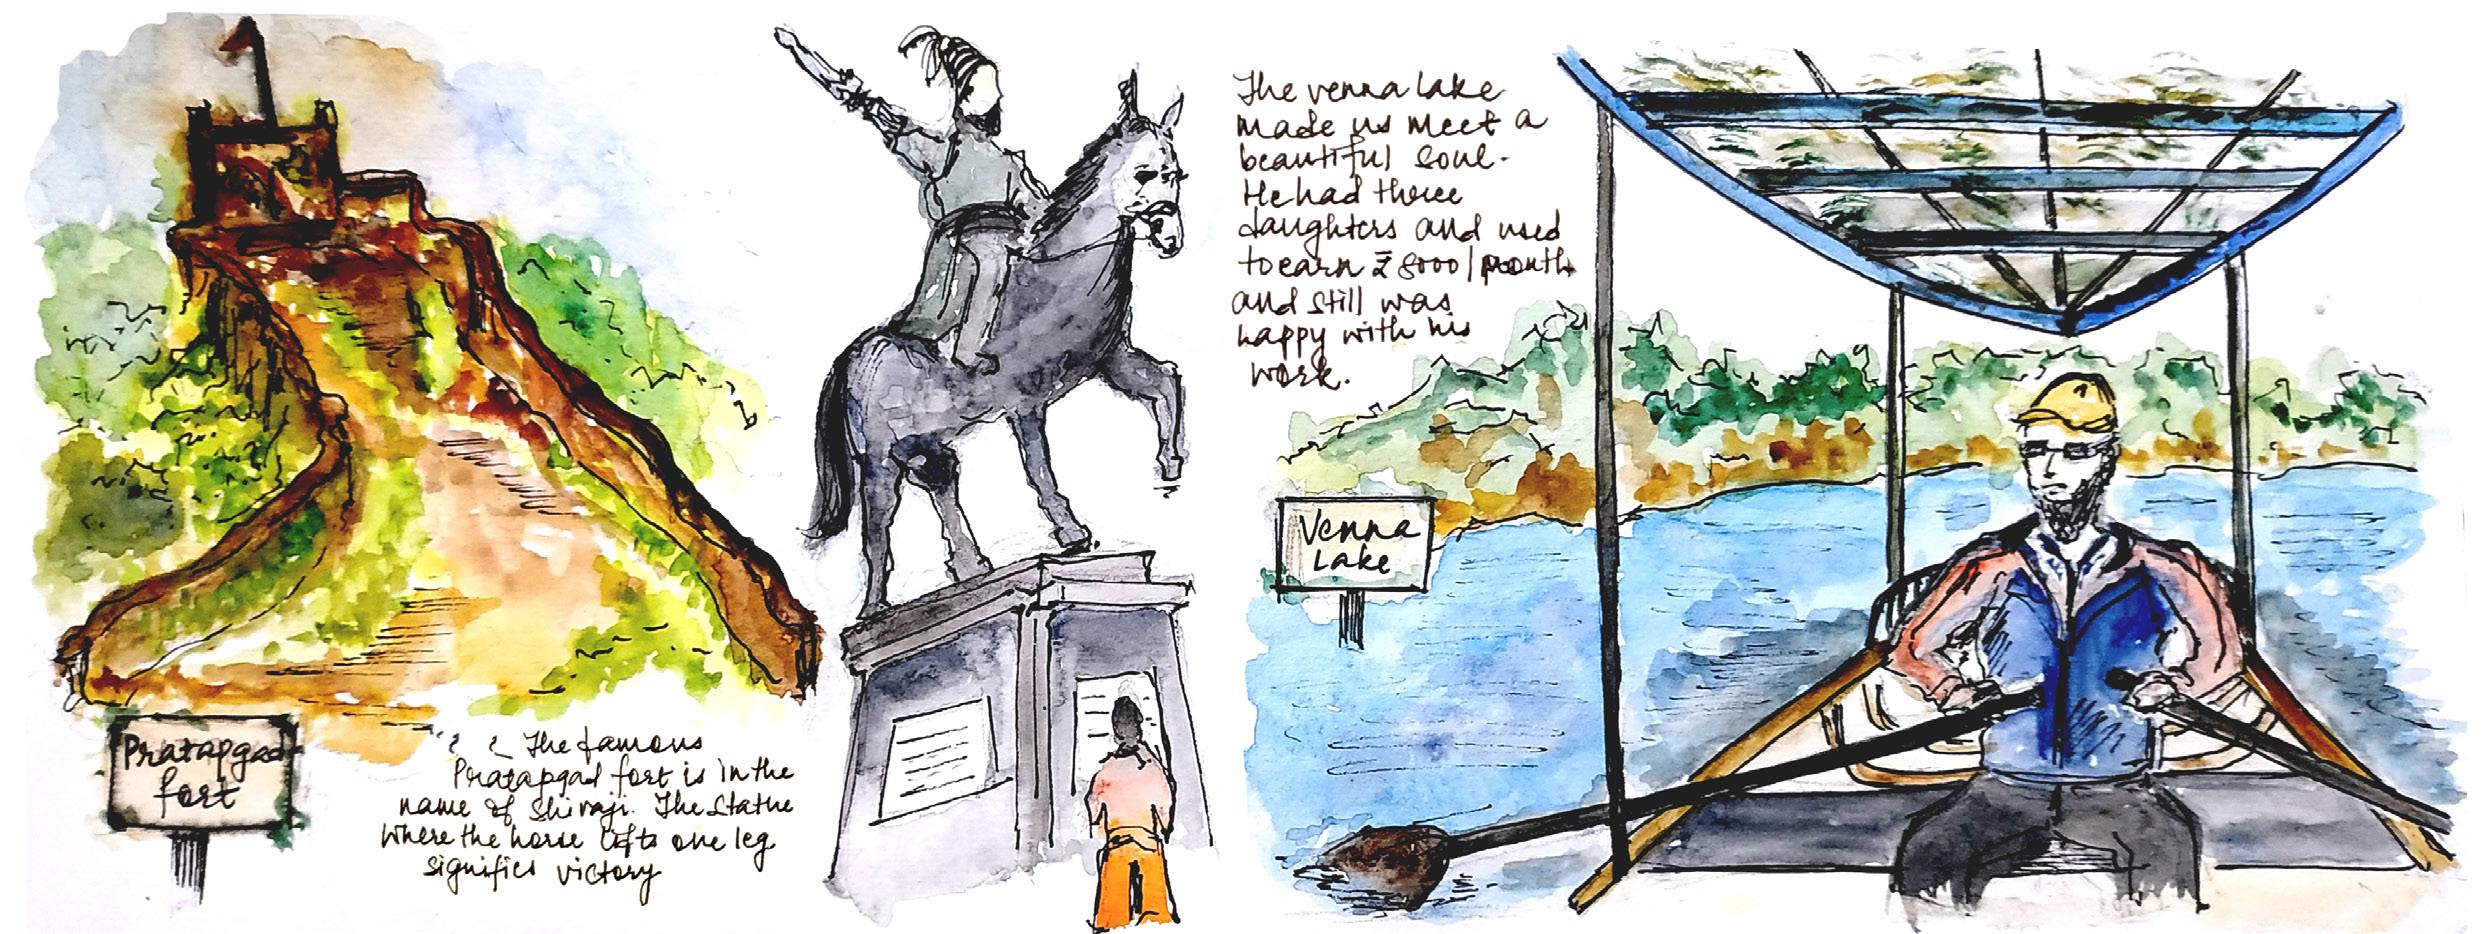 Pratapgad
fort
The famous
Pratapgad fort is in the
name of Shivaji. The Statue
Where the horse lifts one leg
signifies victory
The venna lake
made us meet a
beautiful soul.
He had three
daughters and used
to earn ₹ 8000/month
and still was
happy with his
work.
Venna
Lake